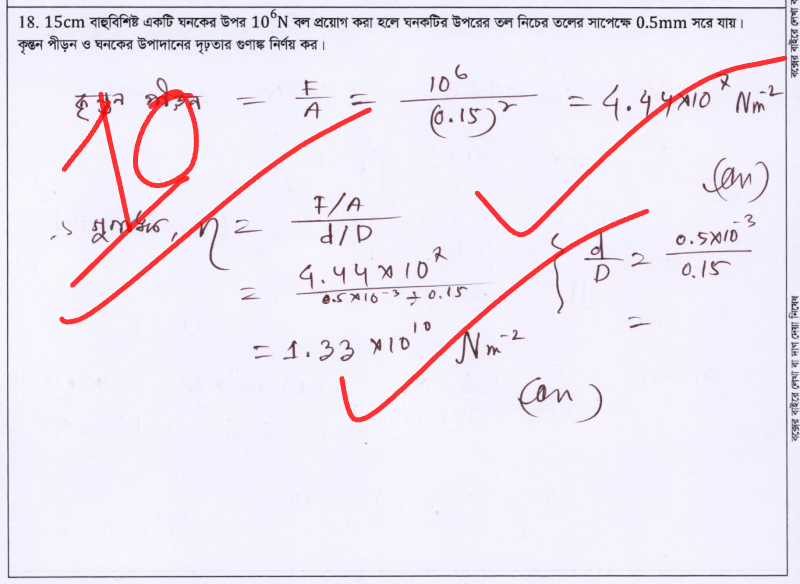 18. 15cm বাহুবিশিষ্ট একটি ঘনকের উপর 10⁶N বল প্রয়োগ করা হলে ঘনকটির উপরের তল নিচের তলের সাপেক্ষে 0.5mm সরে যায়।
কৃন্তন পীড়ন ও ঘনকের উপাদানের দৃঢ়তার গুণাঙ্ক নির্ণয় কর।
কৃন্তন পীড়ন = F/A = 10⁶/(0.15)² = 4.44×10⁷ Nm⁻²
10
(an)
∴ গুণাঙ্ক, η = (F/A)/(d/D)
{ d/D = 0.5×10⁻³/0.15
= 4.44×10⁷/(0.5×10⁻³ ÷ 0.15)
=
= 1.33 ×10¹⁰ Nm⁻²
(an)
বক্সের বাইরে লেখা বা দাগ দেয়া নিষেধ
বক্সের বাইরে লেখা ব